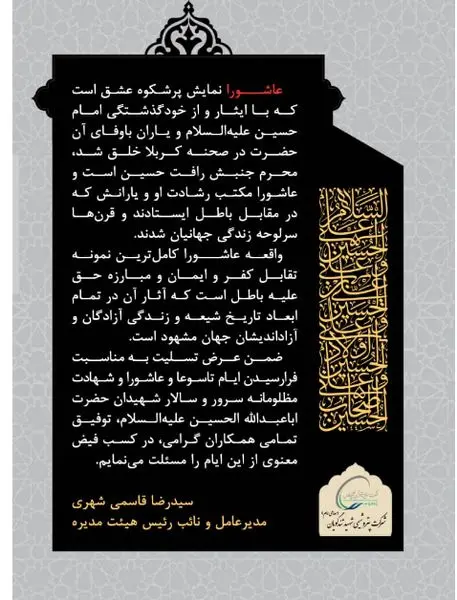 عاشورا نمایش پرشکوه عشق است
که با ایثار و از خودگذشتگی امام
حسین علیه‌السلام و یاران باوفای آن
حضرت در صحنه کربلا خلق شد،
محرم جنبش رافت حسین است و
عاشورا مکتب رشادت او و یارانش که
در مقابل باطل ایستادند و قرن‌ها
سرلوحه زندگی جهانیان شدند.
واقعه عاشورا کامل‌ترین نمونه
تقابل کفر و ایمان و مبارزه حق
علیه باطل است که آثار آن در تمام
ابعاد تاریخ شیعه و زندگی آزادگان و
آزاداندیشان جهان مشهود است.
ضمن عرض تسلیت به مناسبت
فرارسیدن ایام تاسوعا و عاشورا و شهادت
مظلومانه سرور و سالار شهیدان حضرت
اباعبدالله الحسین علیه‌السلام، توفیق
تمامی همکاران گرامی، در کسب فیض
معنوی از این ایام را مسئلت می‌نمایم.
سیدرضا قاسمی شهری
مدیرعامل و نائب رئیس هیئت مدیره
السلام علی
الحسین
و علی علی بن
الحسین
و علی اولاد
الحسین
و علی اصحاب
الحسین
شرکت پتروشیمی شهید تندگویان